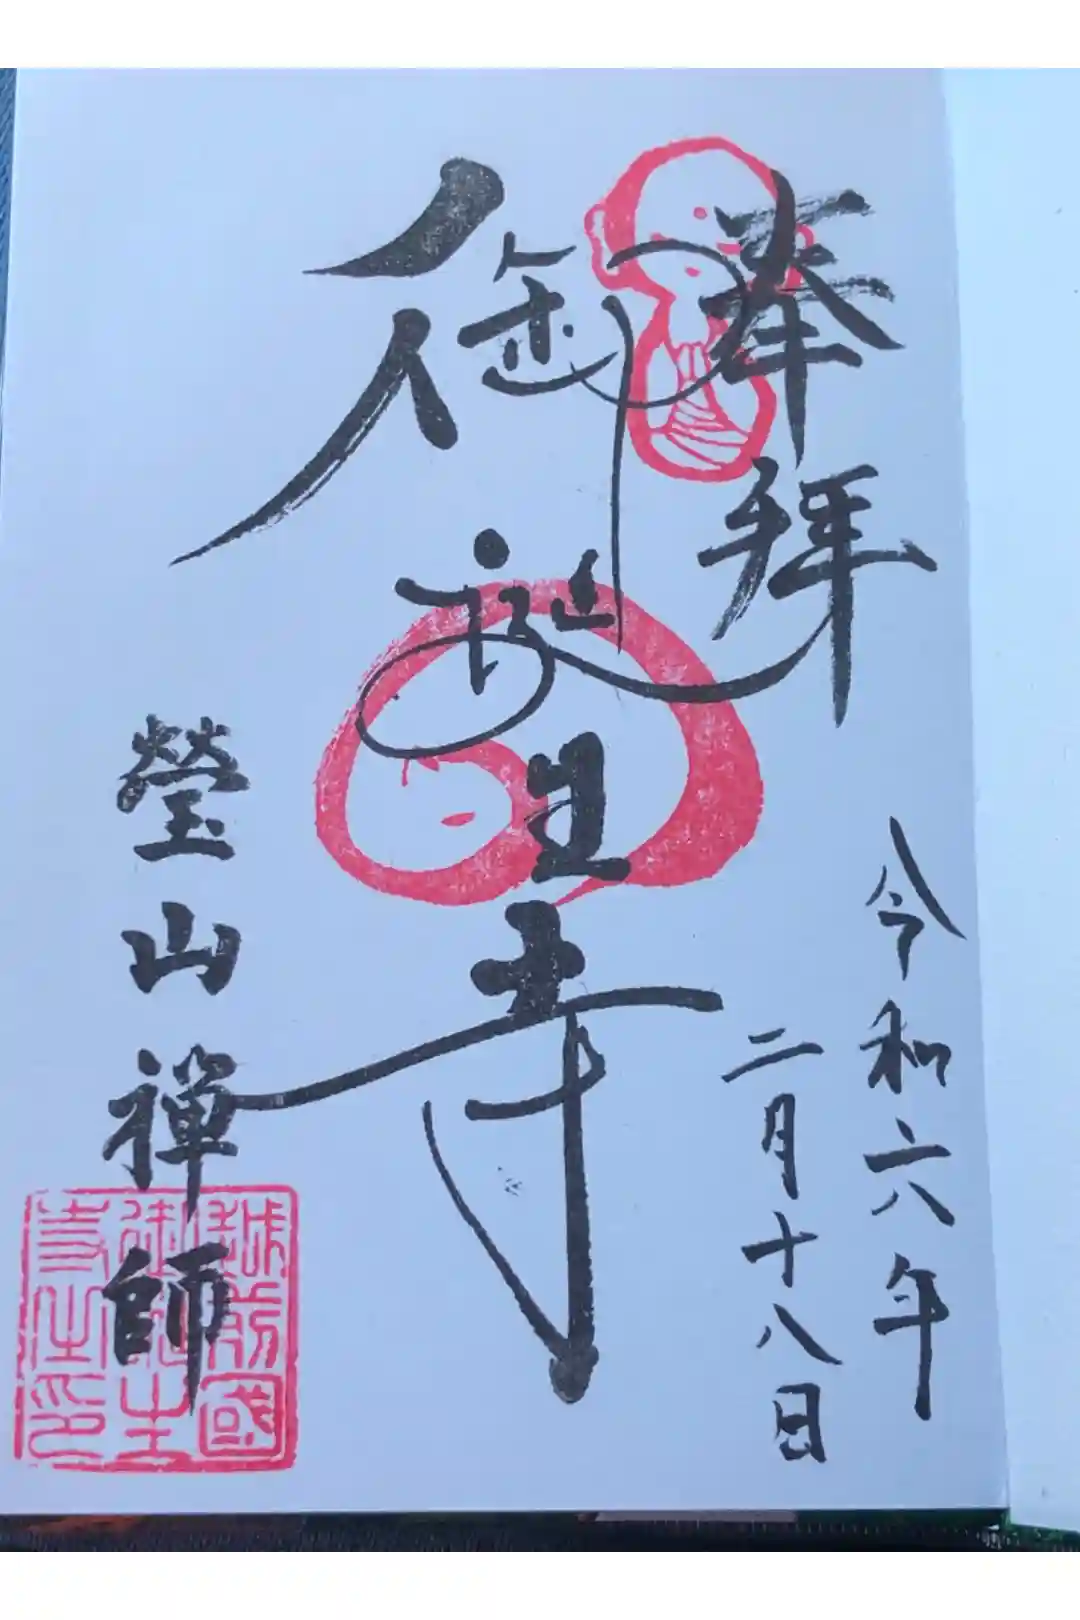 奉拝
令和六年
二月十八日
御誕生寺
瑩山禅師
越前國
御誕生
寺之印